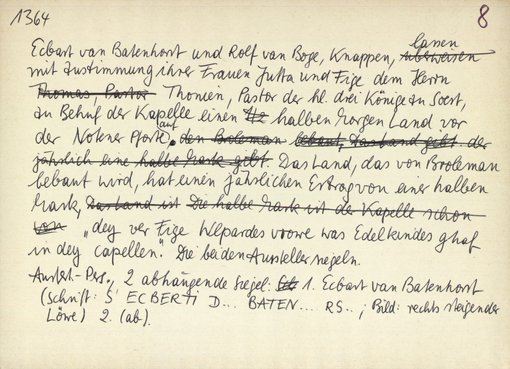 1364 8
Ecbart van Batenhorst und Rolf van Boge, Knappen, ~~überweisen~~ lassen
mit Zustimmung ihrer Frauen Jutta und Fige dem Herrn
~~Thomas, Pastor~~ Thonien, Pastor der hl. drei Könige zu Soest,
zu Behuf der Kapelle einen halben Morgen Land vor
der Notener Pforte auf. ~~den Broleman bebaut, das Land gibt der~~
~~jährlich eine halbe Mark gibt.~~ Das Land, das von Broleman
bebaut wird, hat einen jährlichen Ertrag von einer halben
Mark, ~~das Land ist Die halbe Mark ist der Kapelle schon~~
~~von~~ "dey ver Fige Wlpardes vrowe was Edelkindes ghaf
in dey capellen." Die beiden Aussteller siegeln.
Ausf.-Perg., 2 abhängende Siegel: 1. Ecbart van Batenhorst
(Schrift: S' ECBERTI D... BATEN.... RS..; Bild: rechts steigender
Löwe) 2. (ab).